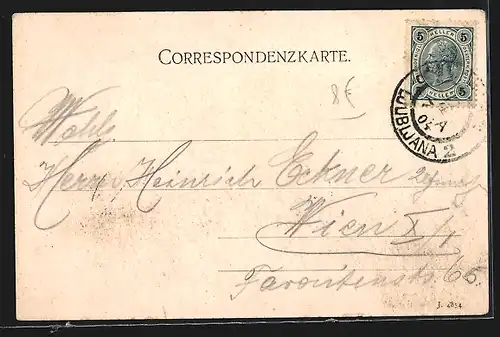 CORRESPONDENZKARTE.
5 HELLER 5
5 HELLER 5
LJUBLJANA 2
8€
Wohlg.
Herrn Heinrich Eckner
Wien X/1
Favoritenstr. 65.
J. 4854